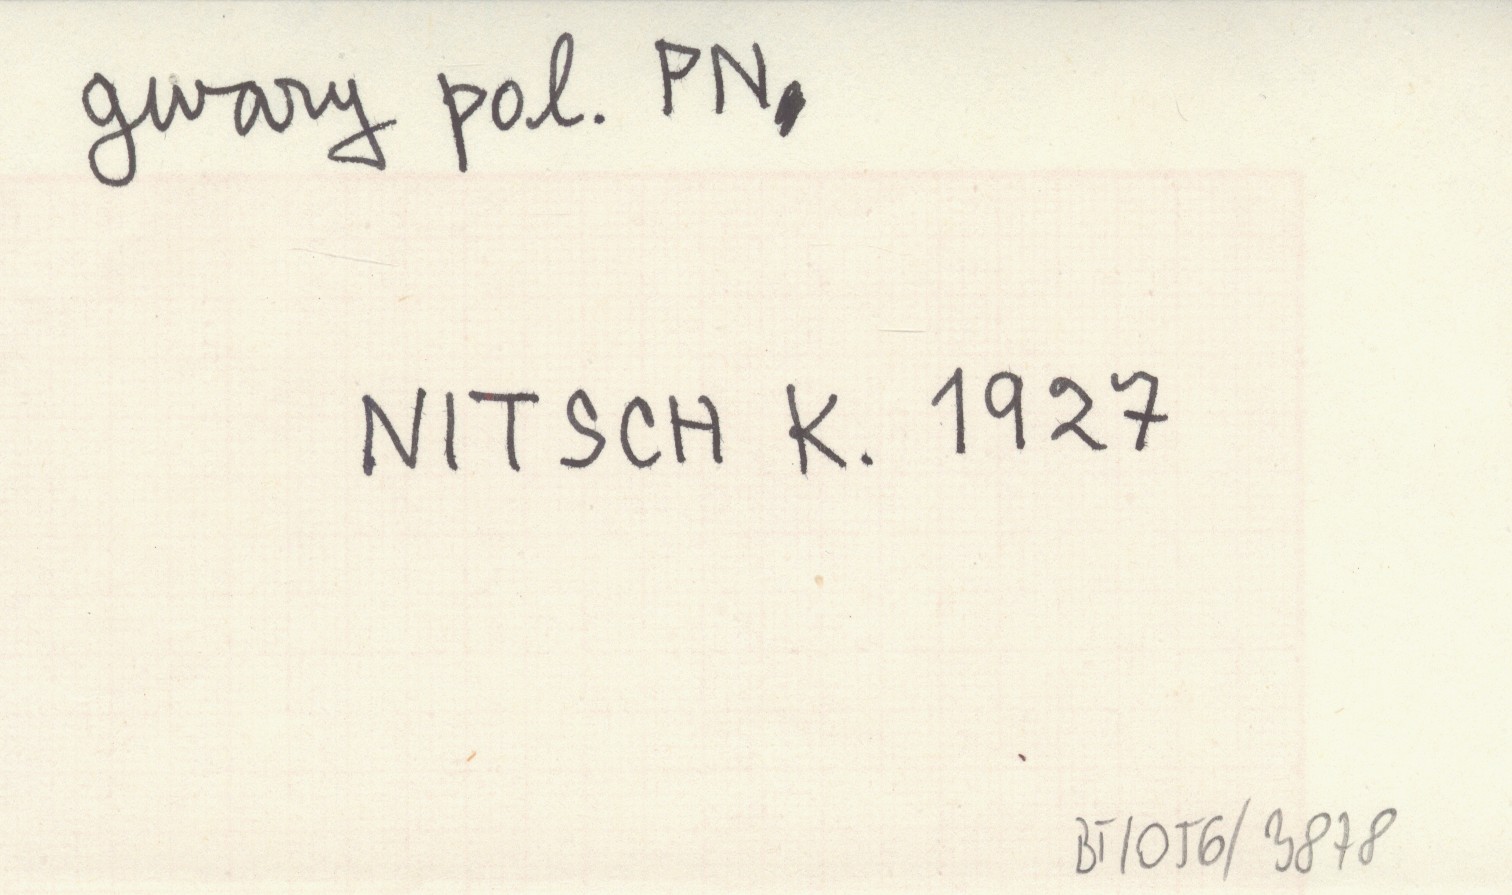 gwary pol. PN.
NITSCH K. 1927
BT/OJG/3878